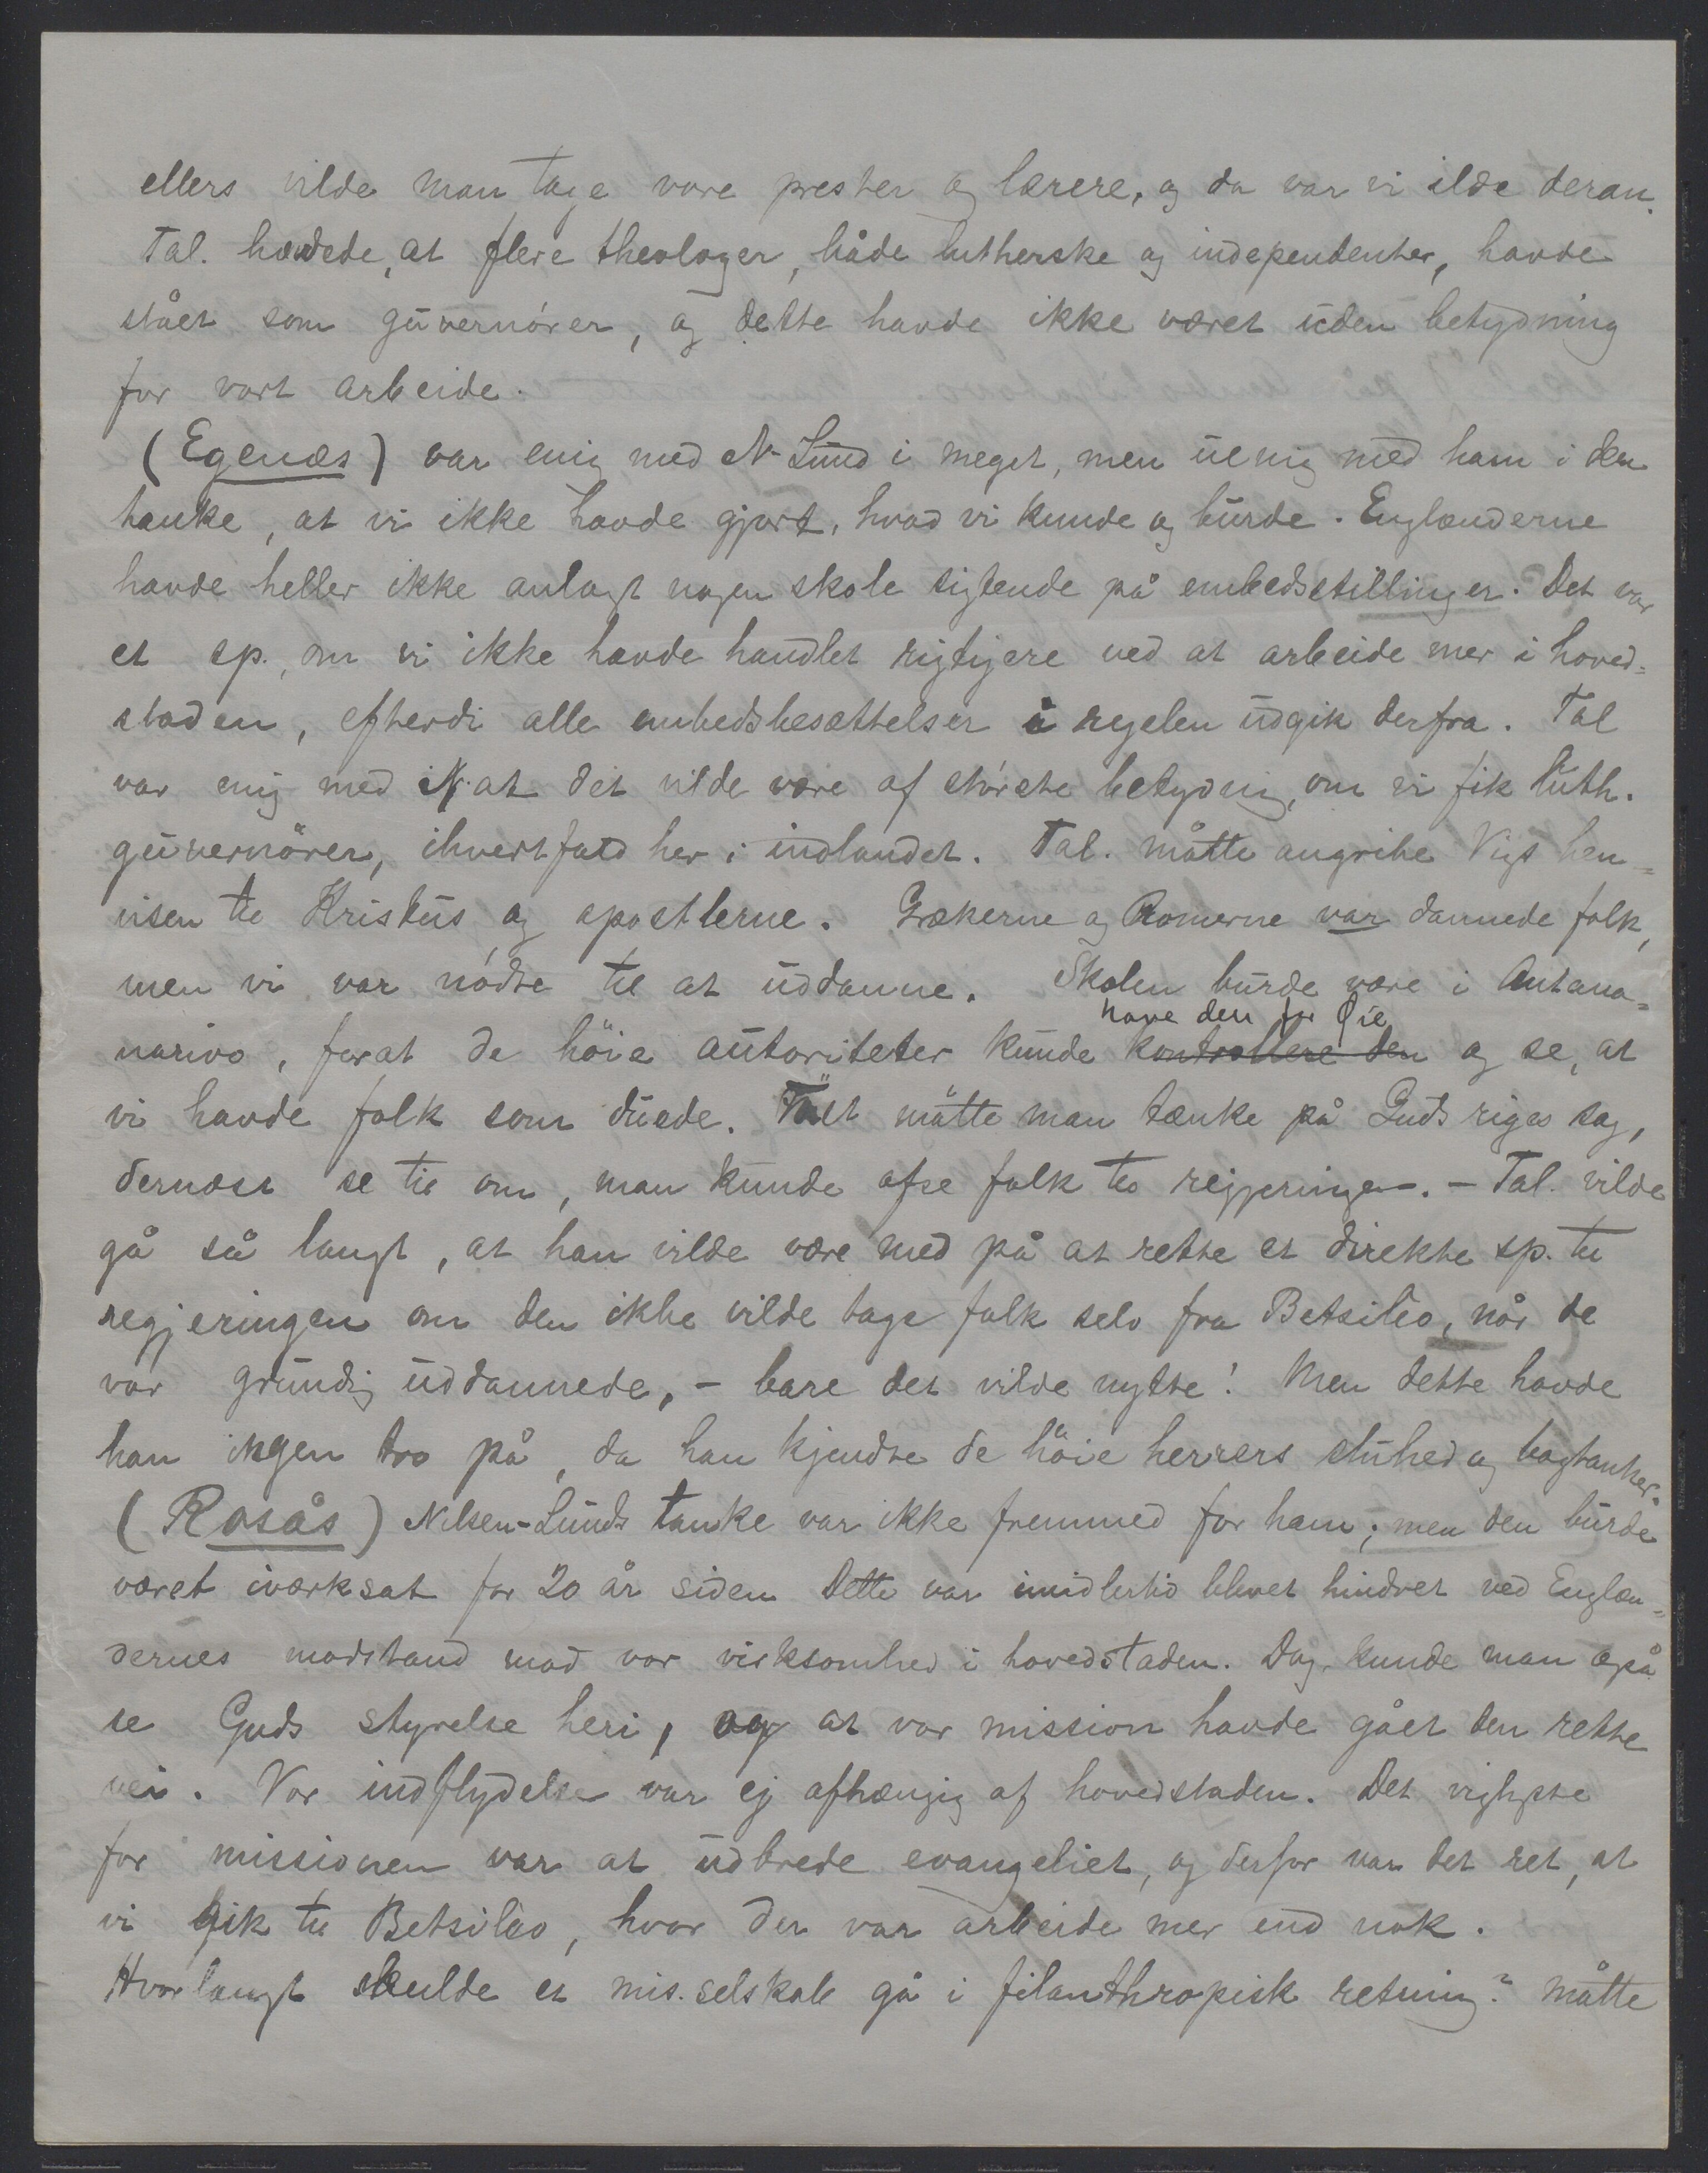 ellers vilde man tage vore prester og lærere, og da var vi ilde deran.
Tal. hævdede, at flere theologer, både lutherske og independenter, havde
stået som guvernörer, og dette havde ikke været uden betydning
for vort arbeide.
(Egenæs) var enig med N-Lund i meget, men uenig med ham i den
tanke, at vi ikke havde gjort, hvad vi kunde og burde. Englænderne
havde heller ikke anlagt nogen skole sigtende på embedsstillinger. Det var
et sp., om vi ikke havde handlet rigtigere ved at arbeide mer i hoved-
staden, efterdi alle embedsbesættelser i regelen udgik derfra. Tal
var enig med N. at det vilde være af störste betydning, om vi fik luth.
guvernörer, ihvertfald her i indlandet. Tal. måtte angribe Vigs hen-
visen til Kristus og apostlerne. Grækerne og Romerne var dannede folk,
men vi var nödte til at uddanne. Skolen burde være i Antana-
have den for Öie
narivo, forat de höie autoriteter kunde kontrollere den og se, at
vi havde folk som duede. Först måtte man tænke på Guds riges sag,
dernæst se til om, man kunde afse folk til regjeringen. - Tal. vilde
gå så langt, at han vilde være med på at rette et direkte sp. til
regjeringen om den ikke vilde tage folk selv fra Betsileo, når de
var grundig uddannede, - bare det vilde nytte! Men dette havde
han ingen tro på, da han kjendte de höie herrers sluhed og bagtanker.
(Rosås) Nilsen-Lunds tanke var ikke fremmed for ham; men den burde
været iværksat for 20 år siden Dette var imidlertid blevet hindret ved Englæn-
dernes modstand mod vor virksomhed i hovedstaden. Dog kunde man også
se Guds styrelse heri, og at vor mission havde gået den rette
vei. Vor indflydelse var ej afhængig af hovedstaden. Det vigtigste
for missionen var at udbrede evangeliet, og derfor var det ret, at
vi gik til Betsileo, hvor der var arbeide mer end nok.
Hvor langt skulde et mis.selskab gå i filanthropisk retning? måtte